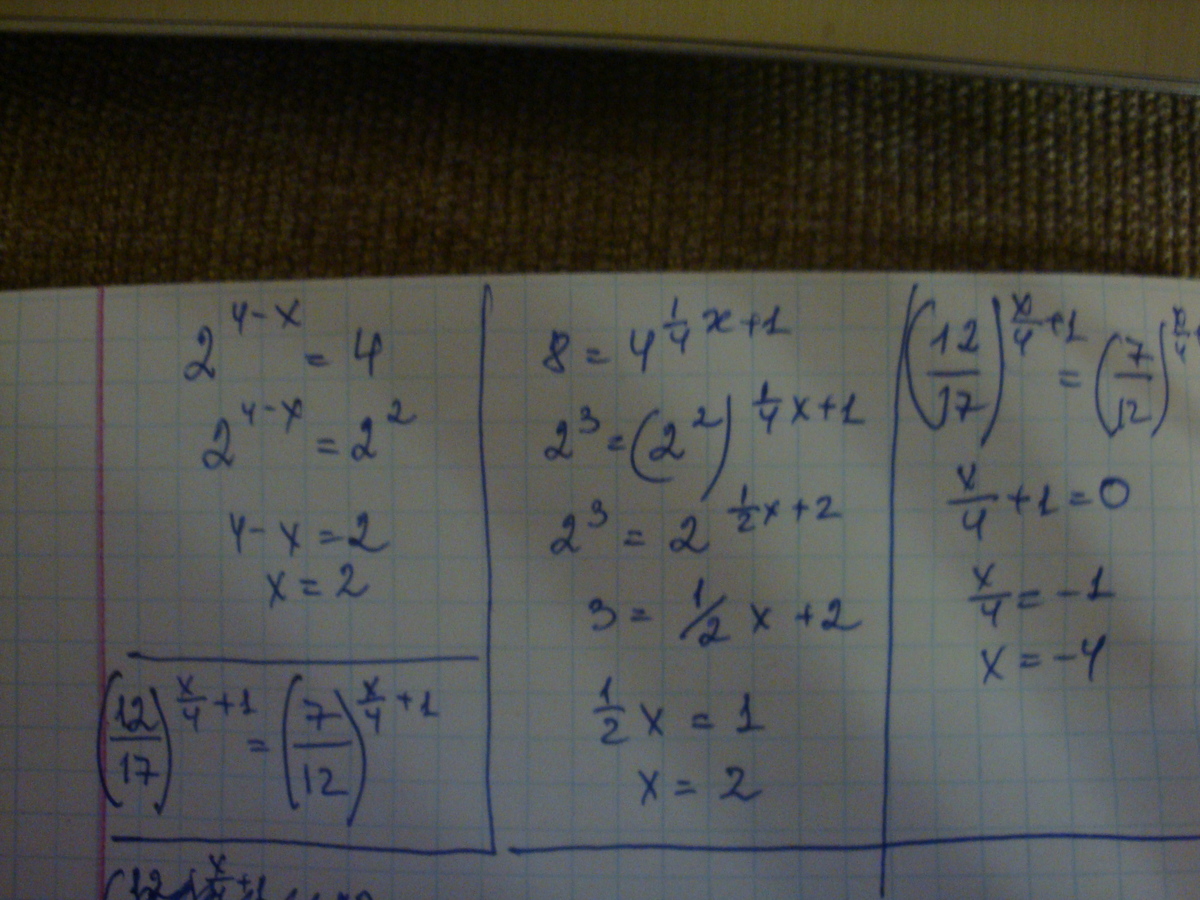 2^{4-x} = 4
2^{4-x} = 2^2
4-x = 2
x = 2
(12/17)^{x/4+1} = (7/12)^{x/4+1}
8 = 4^{1/4 x+1}
2^3 = (2^2)^{1/4 x+1}
2^3 = 2^{1/2 x+2}
3 = 1/2 x + 2
1/2 x = 1
x = 2
(12/17)^{x/4+1} = (7/12)^{x/4+
x/4 + 1 = 0
x/4 = -1
x = -4